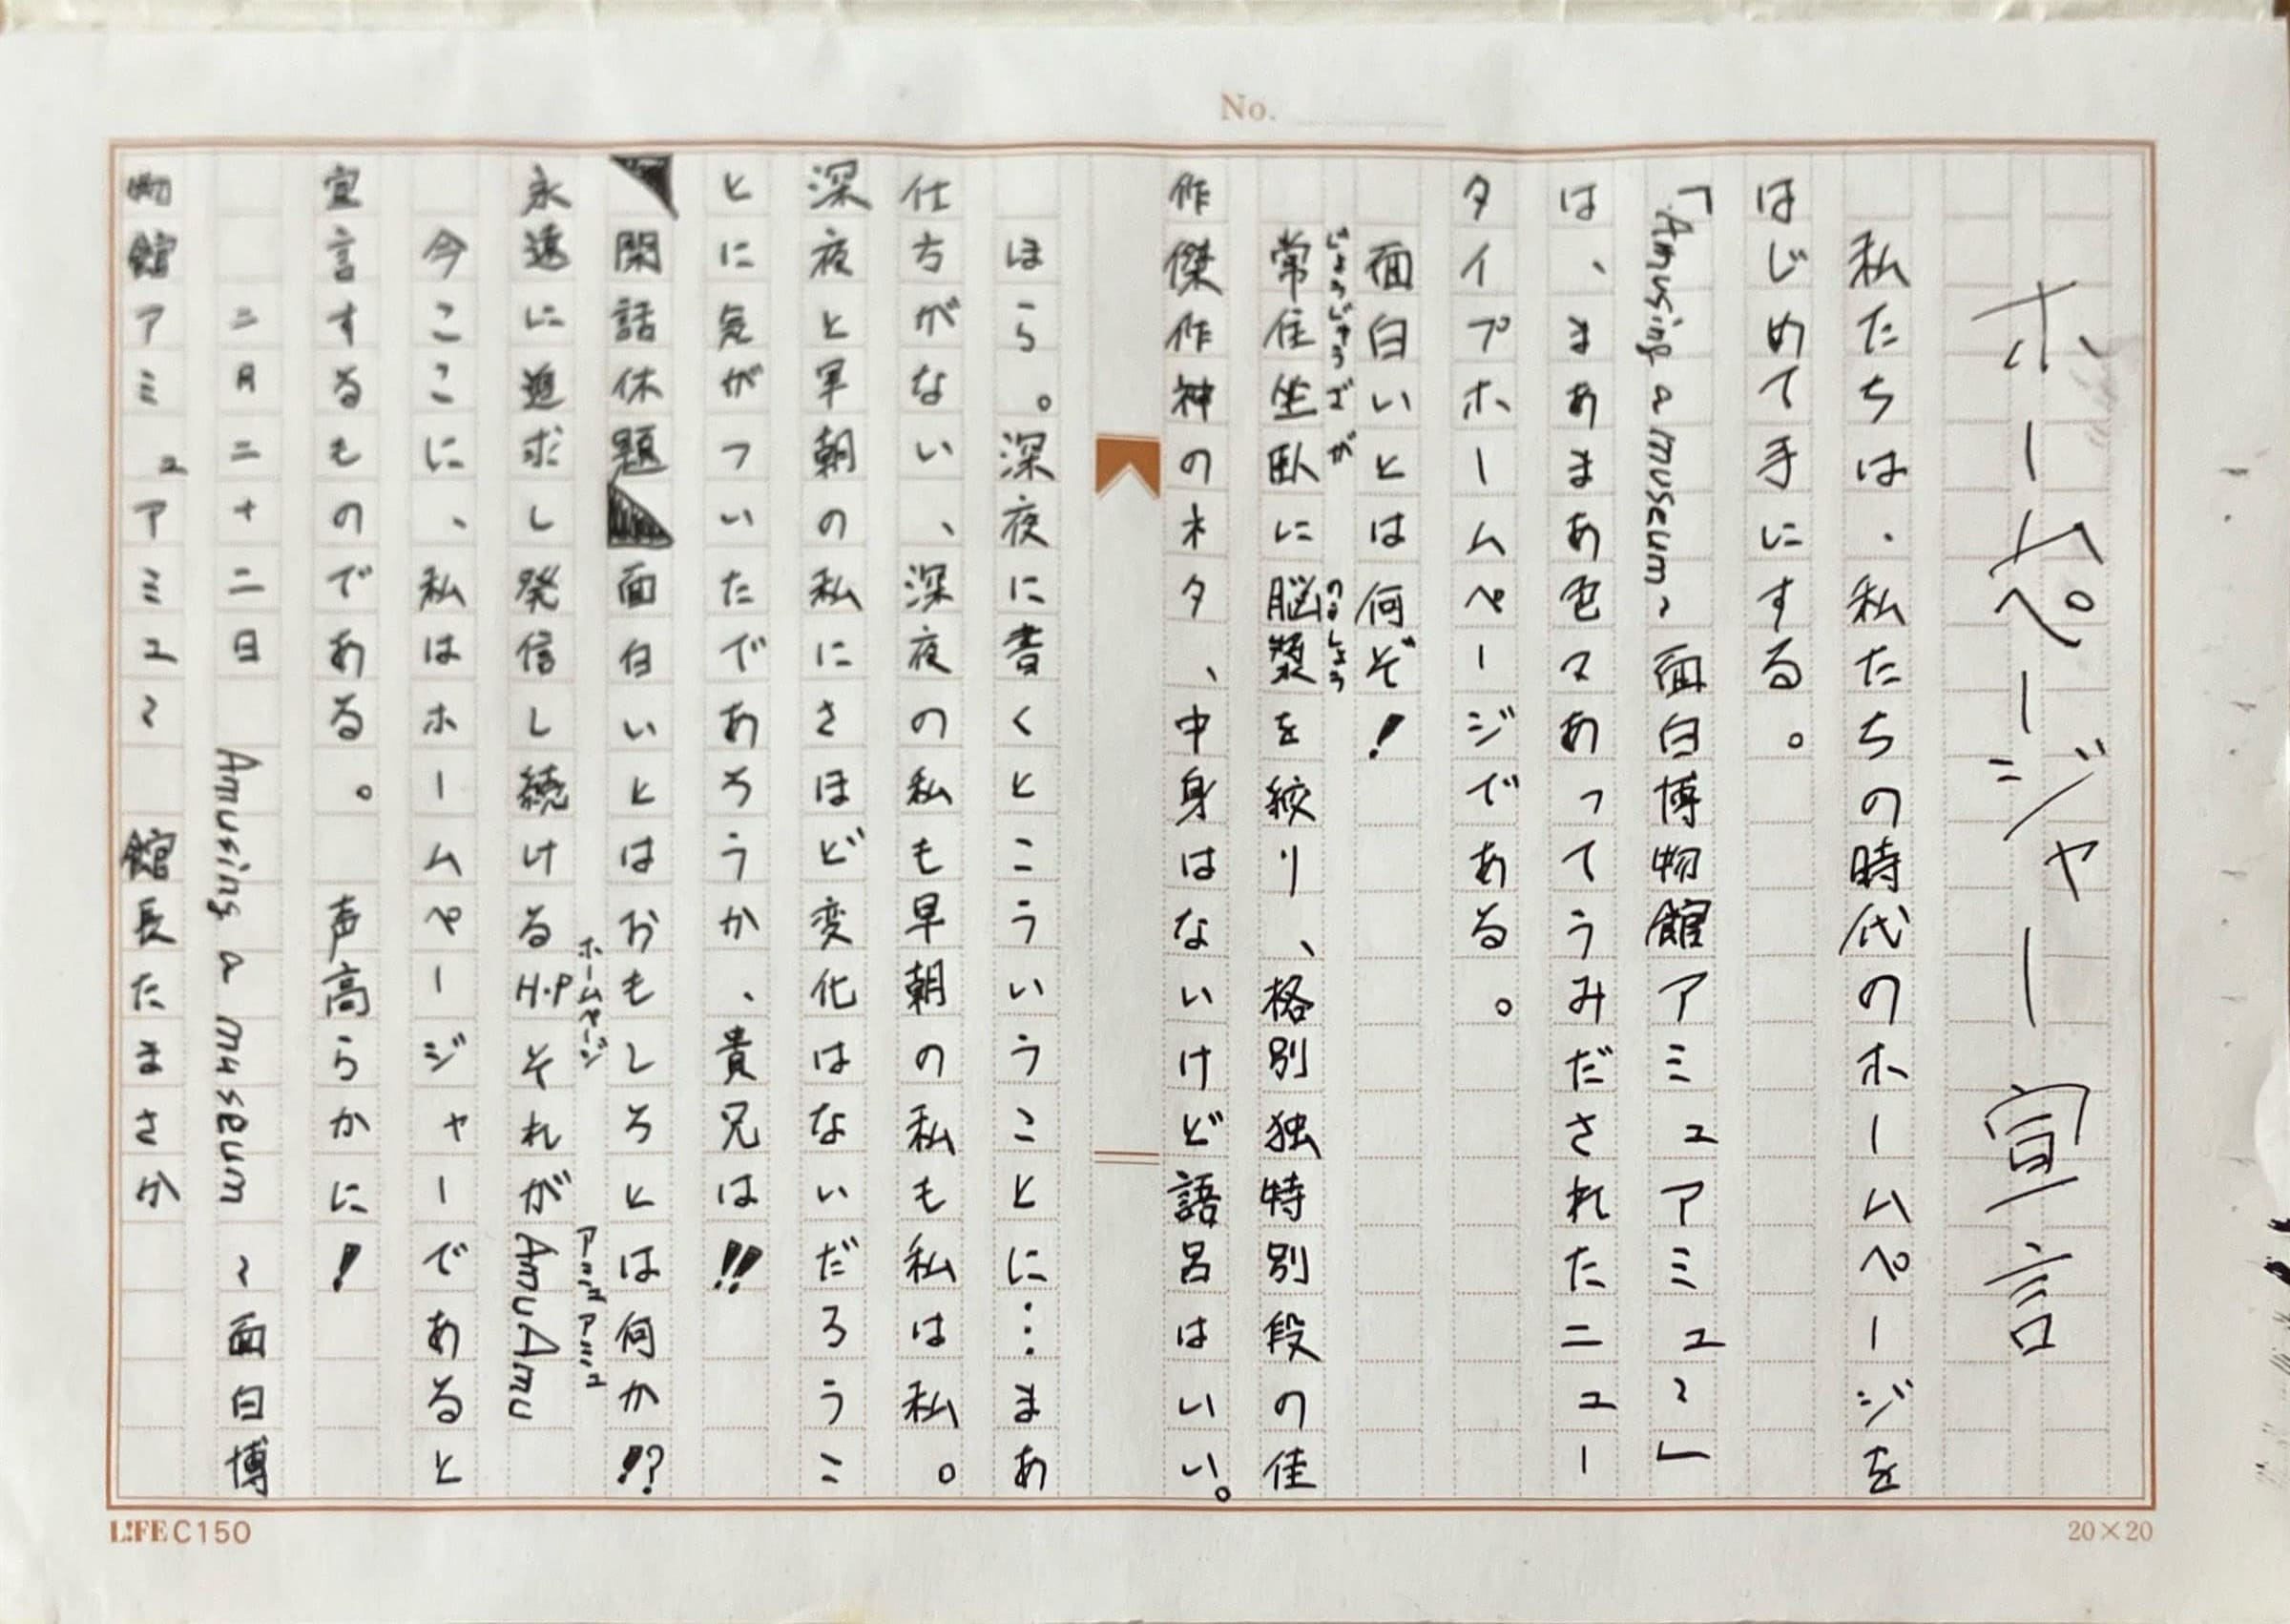 No.
ホームページャー宣言
私たちは、私たちの時代のホームページを
はじめて手にする。
「Amusing a museum〜面白博物館アミュアミュ〜」
は、まあまあ色々あってうみだされたニュー
タイプホームページである。
面白いとは何ぞ!
常住坐臥に脳漿を絞り、格別独特別段の佳
じょうじゅうざが
のうしょう
作傑作神のネタ、中身はないけど語呂はいい。
ほら。深夜に書くとこういうことに…まあ
仕方がない、深夜の私も早朝の私も私は私。
深夜と早朝の私にさほど変化はないだろうこ
とに気がついたであろうか、貴兄は!!
閑話休題 面白いとはおもしろとは何か!?
永遠に追求し発信し続けるH・PそれがAmuAmu
ホームページ
アミュアミュ
今ここに、私はホームページャーであると
宣言するものである。 声高らかに!
二月二十二日 Amusing a museum 〜面白博
物館アミュアミュ〜 館長たまさか
LIFE C150
20×20